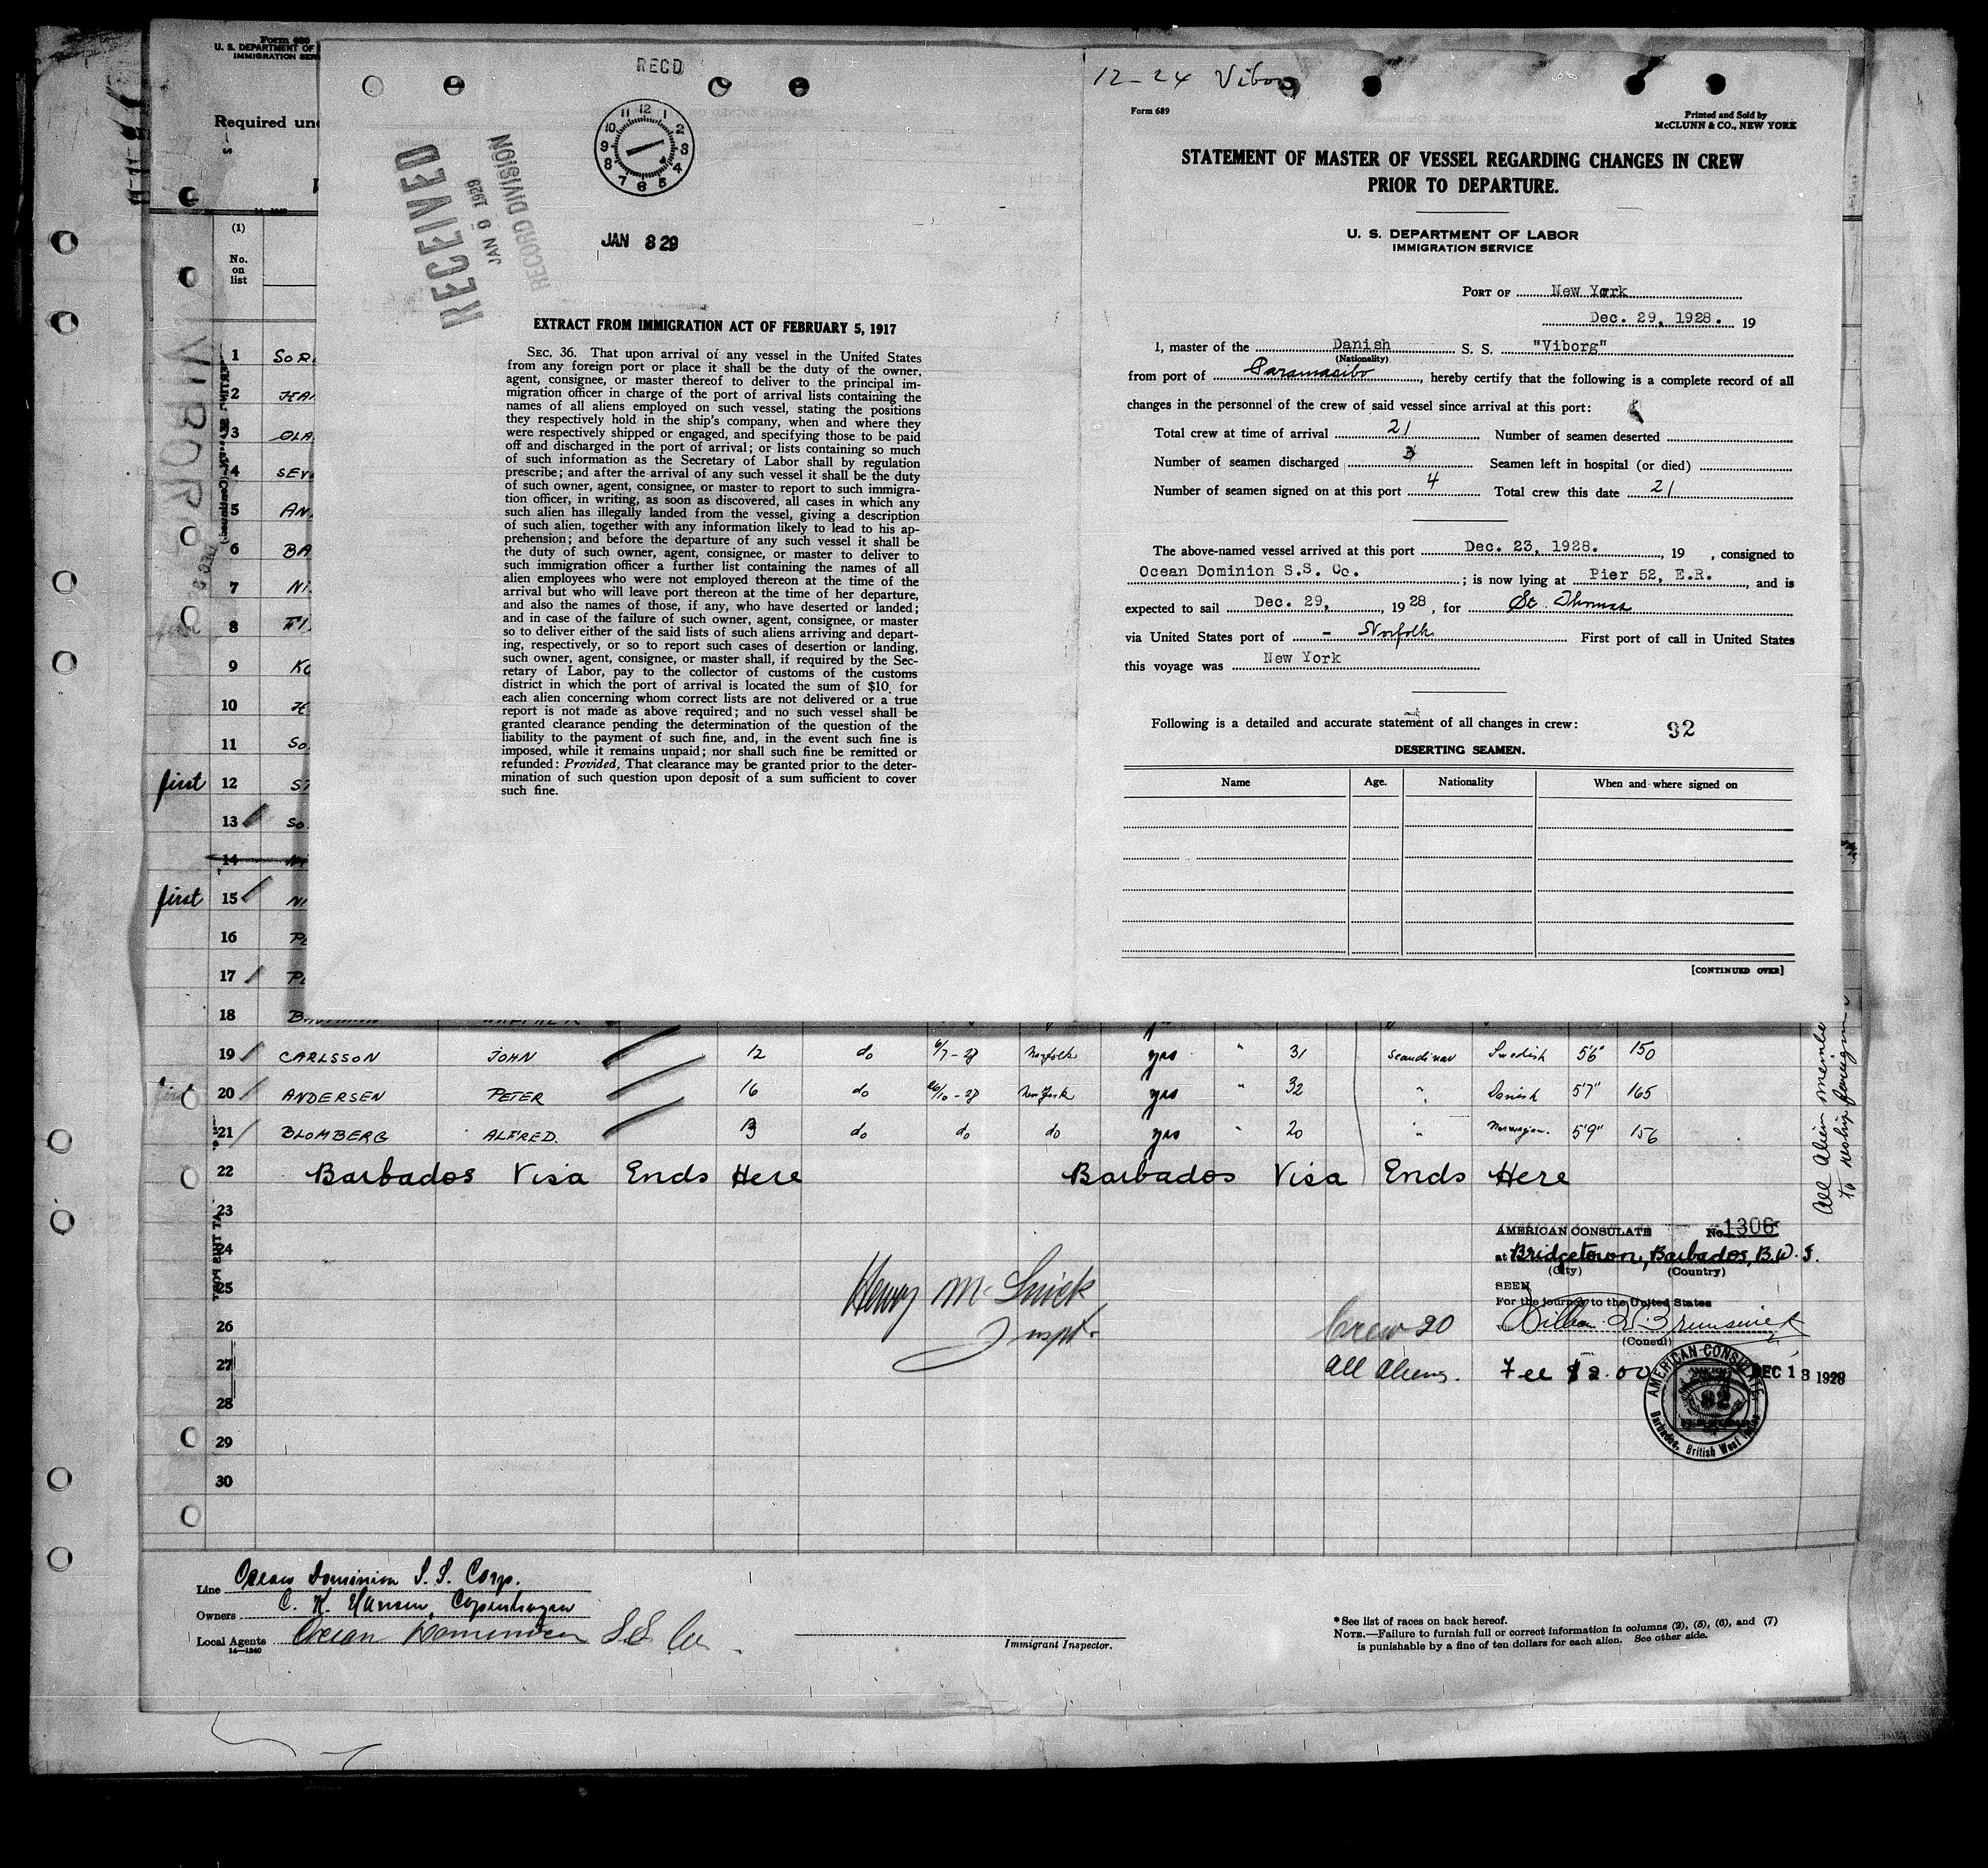 Form 689
U. S. DEPARTMENT OF
IMMIGRATION SER
Required und
(1)
No.
on
list
RECD
12 1 2 3 4 5 6 7 8 9 10 11
RECEIVED
JAN 9 1929
RECORD DIVISION
JAN 8 29
EXTRACT FROM IMMIGRATION ACT OF FEBRUARY 5, 1917
SEC. 36. That upon arrival of any vessel in the United States
from any foreign port or place it shall be the duty of the owner,
agent, consignee, or master thereof to deliver to the principal im-
migration officer in charge of the port of arrival lists containing the
names of all aliens employed on such vessel, stating the positions
they respectively hold in the ship's company, when and where they
were respectively shipped or engaged, and specifying those to be paid
off and discharged in the port of arrival; or lists containing so much
of such information as the Secretary of Labor shall by regulation
prescribe; and after the arrival of any such vessel it shall be the duty
of such owner, agent, consignee, or master to report to such immigra-
tion officer, in writing, as soon as discovered, all cases in which any
such alien has illegally landed from the vessel, giving a description
of such alien, together with any information likely to lead to his ap-
prehension; and before the departure of any such vessel it shall be
the duty of such owner, agent, consignee, or master to deliver to
such immigration officer a further list containing the names of all
alien employees who were not employed thereon at the time of the
arrival but who will leave port thereon at the time of her departure,
and also the names of those, if any, who have deserted or landed;
and in case of the failure of such owner, agent, consignee, or master
so to deliver either of the said lists of such aliens arriving and depart-
ing, respectively, or so to report such cases of desertion or landing,
such owner, agent, consignee, or master shall, if required by the Sec-
retary of Labor, pay to the collector of customs of the customs
district in which the port of arrival is located the sum of $10 for
each alien concerning whom correct lists are not delivered or a true
report is not made as above required; and no such vessel shall be
granted clearance pending the determination of the question of the
liability to the payment of such fine, and, in the event such fine is
imposed, while it remains unpaid; nor shall such fine be remitted or
refunded: Provided, That clearance may be granted prior to the deter-
mination of such question upon deposit of a sum sufficient to cover
such fine.
12-24 Viborg
Form 689
Printed and Sold by
McCLUNN & CO., NEW YORK
STATEMENT OF MASTER OF VESSEL REGARDING CHANGES IN CREW
PRIOR TO DEPARTURE.
U. S. DEPARTMENT OF LABOR
IMMIGRATION SERVICE
PORT OF New York
Dec. 29, 1928. 19
I, master of the Danish S. S. "Viborg"
(Nationality)
from port of Paramaribo, hereby certify that the following is a complete record of all
changes in the personnel of the crew of said vessel since arrival at this port:
Total crew at time of arrival 21 Number of seamen deserted
Number of seamen discharged Seamen left in hospital (or died)
Number of seamen signed on at this port 4 Total crew this date 21
The above-named vessel arrived at this port Dec. 23, 1928., 19 , consigned to
Ocean Dominion S.S. Co. ; is now lying at Pier 52, E.R., and is
expected to sail Dec. 29, , 1928, for St. Thomas
via United States port of - Norfolk First port of call in United States
this voyage was New York
Following is a detailed and accurate statement of all changes in crew: 92
DESERTING SEAMEN.
Name Age. Nationality When and where signed on
[CONTINUED OVER]
VIBORG
1 SOR
2 HA
3 OLA
4 SEV
5 AN
6 BA
7 NI
8
9 KO
10 H
11 SO
first 12 ST
13 SO
14
first 15 NI
16 PE
17 PE
18
19 CARLSSON JOHN 12 do 6/7-28 Norfolk yes " 31 Scandinav Swedish 5'6" 150
20 ANDERSEN PETER 16 do 26/10-28 New York yes " 32 " Danish 5'7" 165
21 BLOMBERG ALFRED. 13 do do do yes " 20 " Norwegian. 5'9" 156
22 Barbados Visa Ends Here Barbados Visa Ends Here
23
24
25
26
27
28
29
30
All Alien membe
to reship foreign
AMERICAN CONSULATE No. 1306
at Bridgetown, Barbados, B.W.I.
(City) (Country)
SEEN
For the journey to the United States
(Consul)
Henry Mc
Inspt.
Crew 20
All Aliens.
Fee $2.00 DEC 13 1928
AMERICAN CONSULATE
Barbados, British West Indies
Line Ocean Dominion S.S. Corp.
Owners C. K. Hansen, Copenhagen
Local Agents Ocean Dominion S.S. Co.
14-1240
Immigrant Inspector.
*See list of races on back hereof.
NOTE.—Failure to furnish full or correct information in columns (2), (5), (6), and (7)
is punishable by a fine of ten dollars for each alien. See other side.